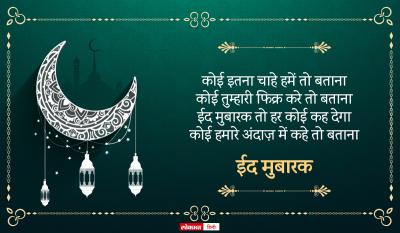 कोई इतना चाहे हमें तो बताना
कोई तुम्हारी फिक्र करे तो बताना
ईद मुबारक तो हर कोई कह देगा
कोई हमारे अंदाज़ में कहे तो बताना
ईद मुबारक
लोकमत हिन्दी